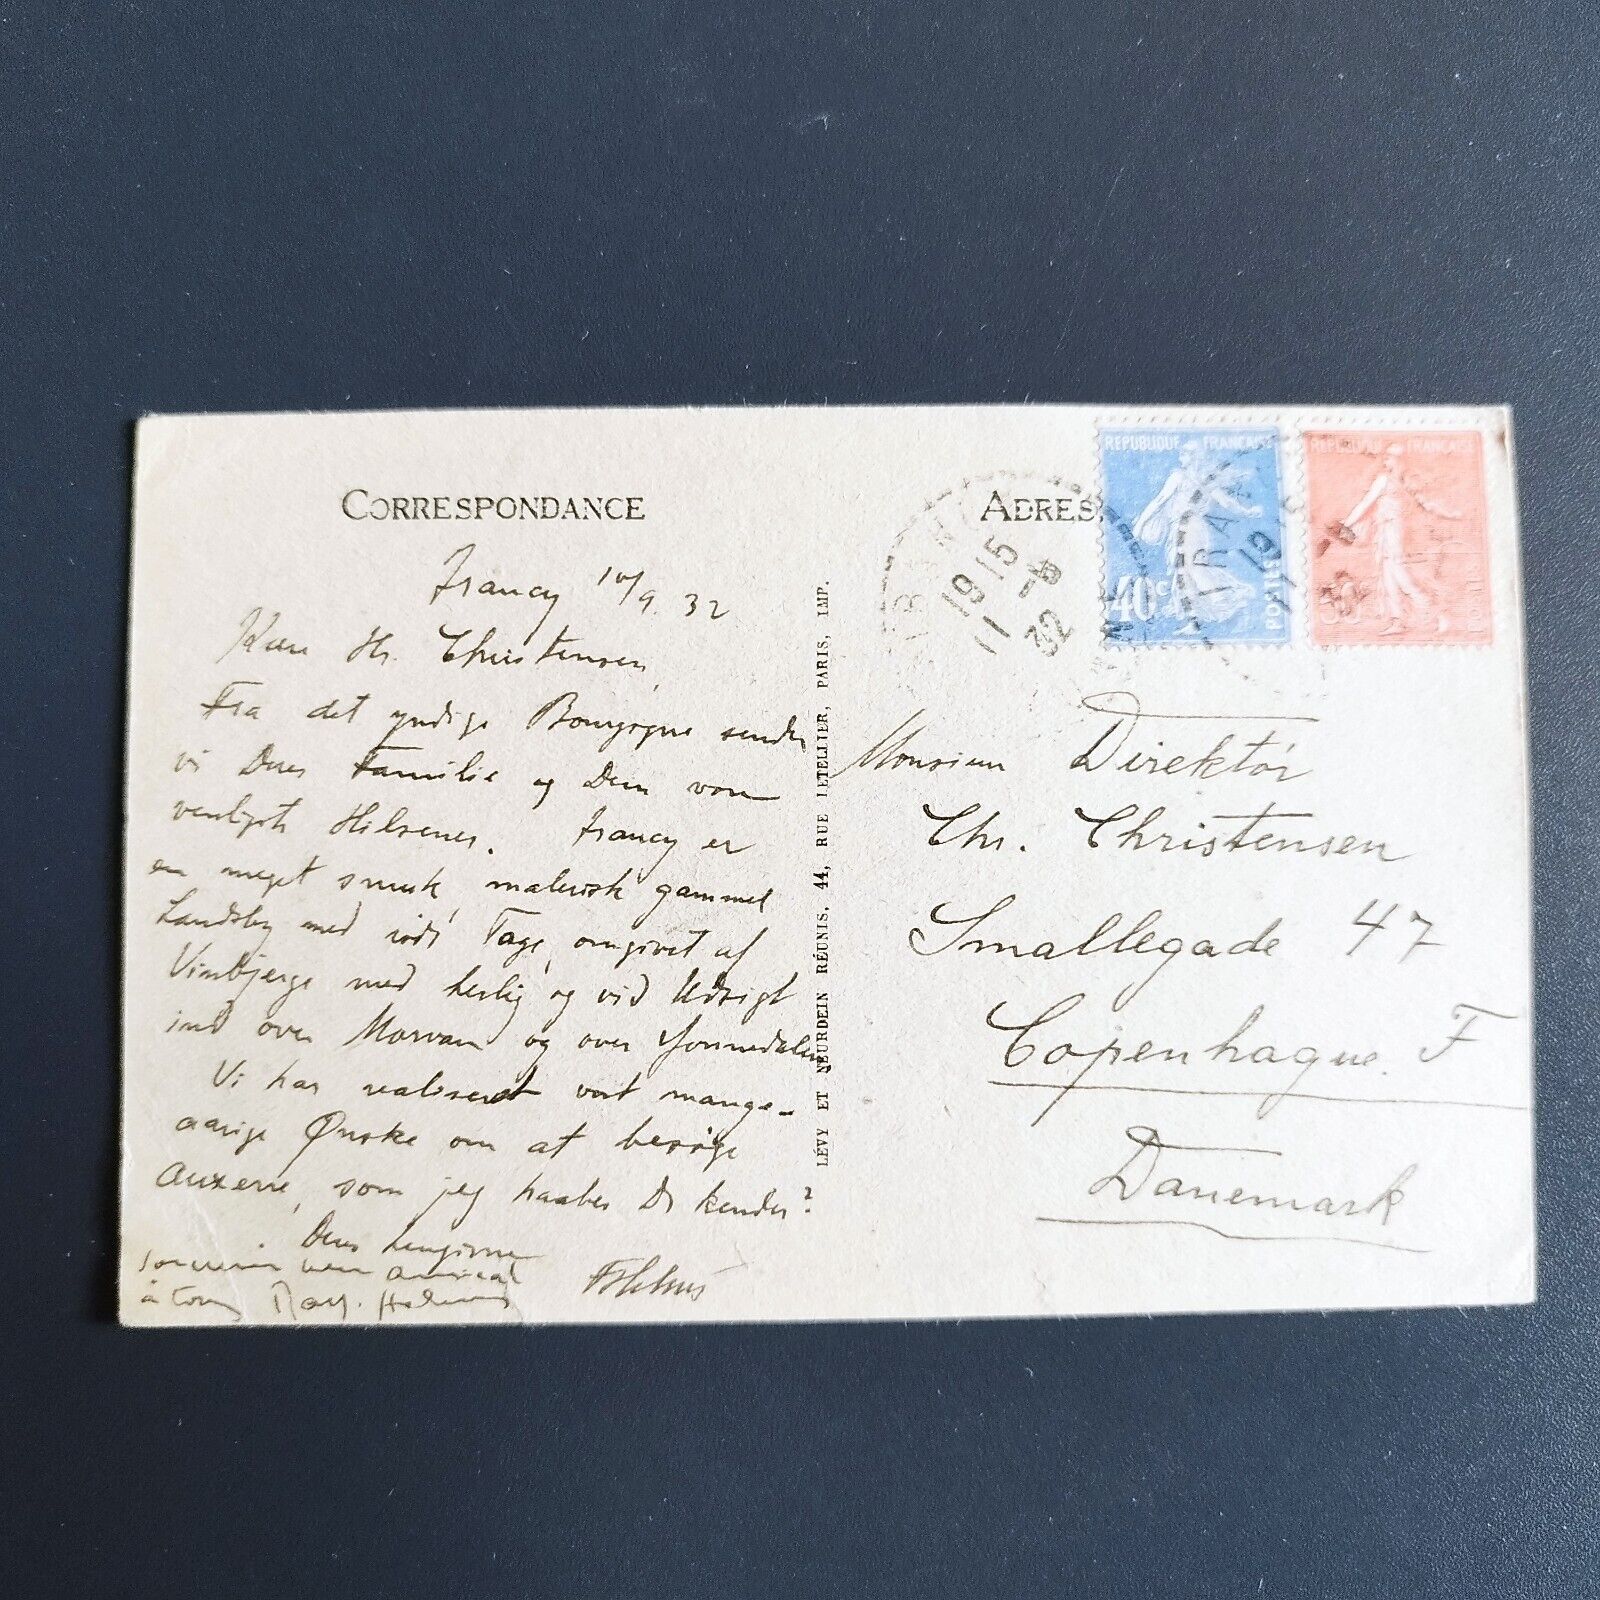 CORRESPONDANCE
Irancy 10/9. 32
Kære Hr. Christensen,
Fra det yndige Bourgogne sender
vi Deres Familie og Dem vore
venligste Hilsener. Irancy er
en meget smuk, malerisk gammel
Landsby med røde Tage, omgivet af
Vinbjerge med herlig og vid Udsigt
ind over Morvan og over Yonnedalen
Vi har realiseret vort mange-
aarige Ønske om at besøge
Auxerre, som jeg haaber De kender?
Deres hengivne
Souvenir bien amical
à tous
LÉVY ET NEURDEIN RÉUNIS, 44, RUE LETELLIER, PARIS, IMP.
ADRES
19 15
11 -9
32
REPUBLIQUE FRANÇAISE
40c
POSTES
Monsieur Direktör
Chr. Christensen
Smallegade 47
Copenhague. F
Danemark